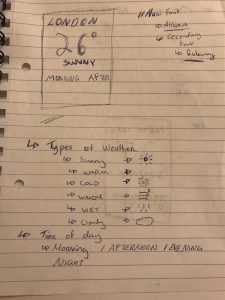 LONDON
26°
SUNNY
MORNING AFTER
Main font
Secondary
font
Types of Weather
Sunny
WARM
COLD
WINDY
WET
Cloudy
Time of day
Morning / AFTERNOON / EVENING
NIGHT